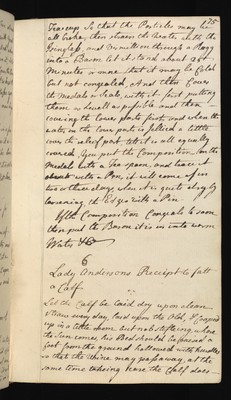 75
Teacups So that the Particles may be
all broke, then strain the Water with the
Isinglass, and Brimstone through a Ragg
into a Bason let it stand about a
Minutes or more that it may be Cold
but not congealed. And then Cover
the Medals or Seals, with it first putting
them as small as possible and then
covering the lower parts first, and when the
water, in the lower parts is settled a little
cover the raised part till it is all equally
covered. You put the Composition on the
Medals with a Tea spoon, and leave it
about with a Pen, it will come off in
two or three days, when it is quite dry by
loosening the Edge with a Pen
If the Composition Congeals too soon
then put the Bason it is in into warm
Water &c
6
Lady Andersons Receipt to fatt
a Calf
Let the Calf be laid dry upon clean
Straw every day, laid upon the Old, & cooped
up in a little room but not stifling, where
the Sun comes, his Bed should be raised a
foot from the ground hollowed with Hurdles
so that the Urine may pass away, at the
same time taking care the Calf does